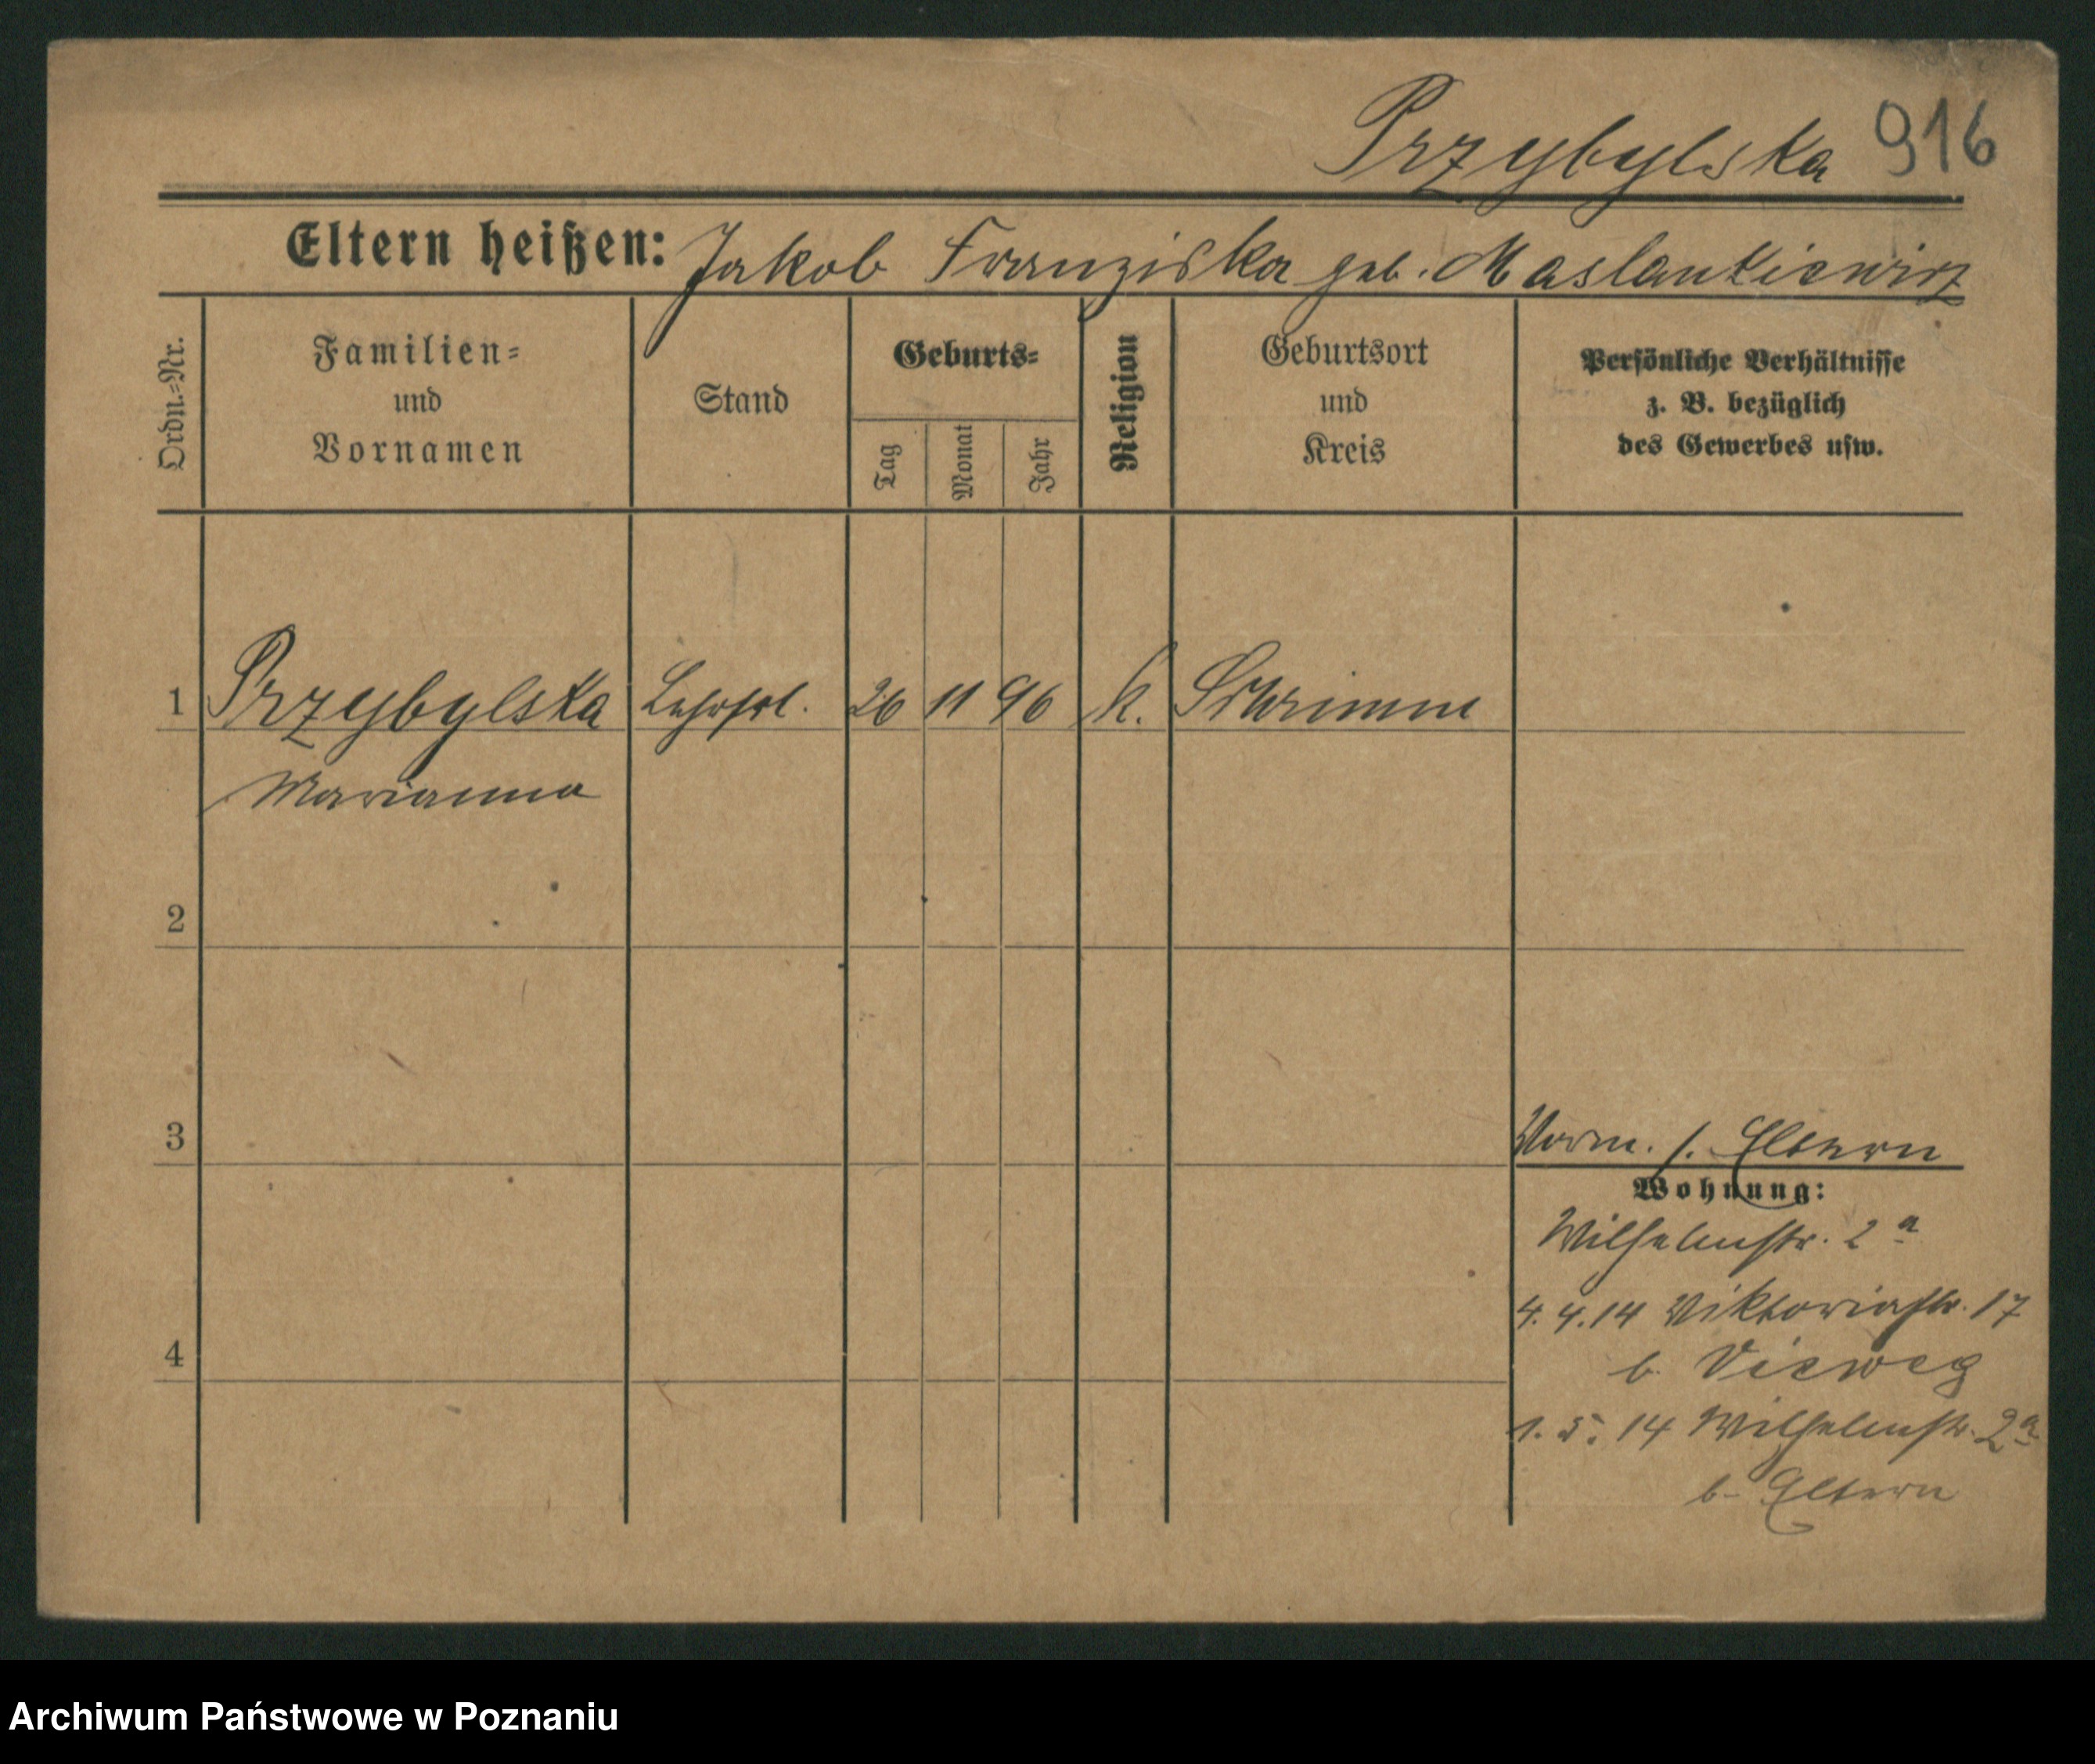 Przybylska 916
Eltern heißen: Jakob Franziska geb. Maslankiewicz
Ordn.-Nr.
Familien-
und
Vornamen
Stand
Geburts-
Tag
Monat
Jahr
Religion
Geburtsort
und
Kreis
Persönliche Verhältnisse
z. B. bezüglich
des Gewerbes usw.
1 Przybylska Lehrfrl. 26 11 96 k. Schrimm
Marianna
2
3
Vorm. s. Eltern
Wohnung:
Wilhelmstr. 2a
4. 4. 14 Viktoriastr. 17
4
b. Vieweg
1. 5. 14 Wilhelmstr. 2a
b. Eltern
Archiwum Państwowe w Poznaniu